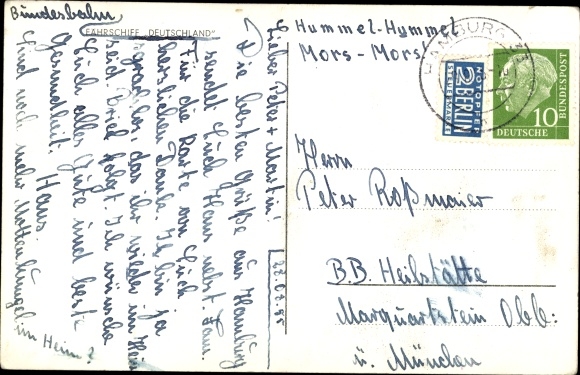 Bundesbahn
FAHRSCHIFF „DEUTSCHLAND"
Lieber Peter + Martin!
Die besten Grüße aus Hamburg
sendet Euch Hans nebst Fam.
Für die Karte von Euch
herzlichen Dank. Ich bin ja
sprachlos, das ihr wieder im Heim
seid. Brief folgt. Ich wünsche
Euch alles Gute und beste
Gesundheit. Hans.
Sind noch mehr
im Heim?
Hummel-Hummel
Mors-Mors
HAMBURG
NOTOPFER
2 BERLIN
STEUERMARKE
10
DEUTSCHE
BUNDESPOST
Herrn
Peter Roßmaier
B.B. Heilstätte
Marquartstein Obb:
ü. München